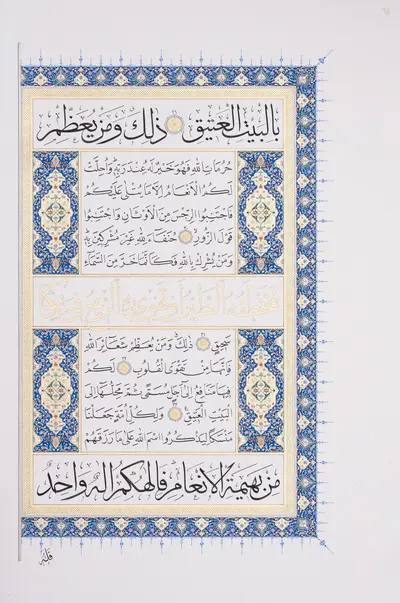 بِالْبَيْتِ الْعَتِيقِ ذَٰلِكَ وَمَنْ يُعَظِّمْ
حُرُمَاتِ اللهِ فَهُوَ خَيْرٌ لَهُ عِنْدَ رَبِّهِ وَأُحِلَّتْ
لَكُمُ الْأَنْعَامُ إِلَّا مَا يُتْلَىٰ عَلَيْكُمْ
فَاجْتَنِبُوا الرِّجْسَ مِنَ الْأَوْثَانِ وَاجْتَنِبُوا
قَوْلَ الزُّورِ حُنَفَاءَ لِلهِ غَيْرَ مُشْرِكِينَ بِهِ
وَمَنْ يُشْرِكْ بِاللهِ فَكَأَنَّمَا خَرَّ مِنَ السَّمَاءِ
فَتَخْطَفُهُ الطَّيْرُ أَوْ تَهْوِي بِهِ الرِّيحُ فِي مَكَانٍ
سَحِيقٍ ذَٰلِكَ وَمَنْ يُعَظِّمْ شَعَائِرَ اللهِ
فَإِنَّهَا مِنْ تَقْوَى الْقُلُوبِ لَكُمْ
فِيهَا مَنَافِعُ إِلَىٰ أَجَلٍ مُسَمًّى ثُمَّ مَحِلُّهَا إِلَى
الْبَيْتِ الْعَتِيقِ وَلِكُلِّ أُمَّةٍ جَعَلْنَا
مَنْسَكًا لِيَذْكُرُوا اسْمَ اللهِ عَلَىٰ مَا رَزَقَهُمْ
مِنْ بَهِيمَةِ الْأَنْعَامِ فَإِلَٰهُكُمْ إِلَٰهٌ وَاحِدٌ
فَلَهُ